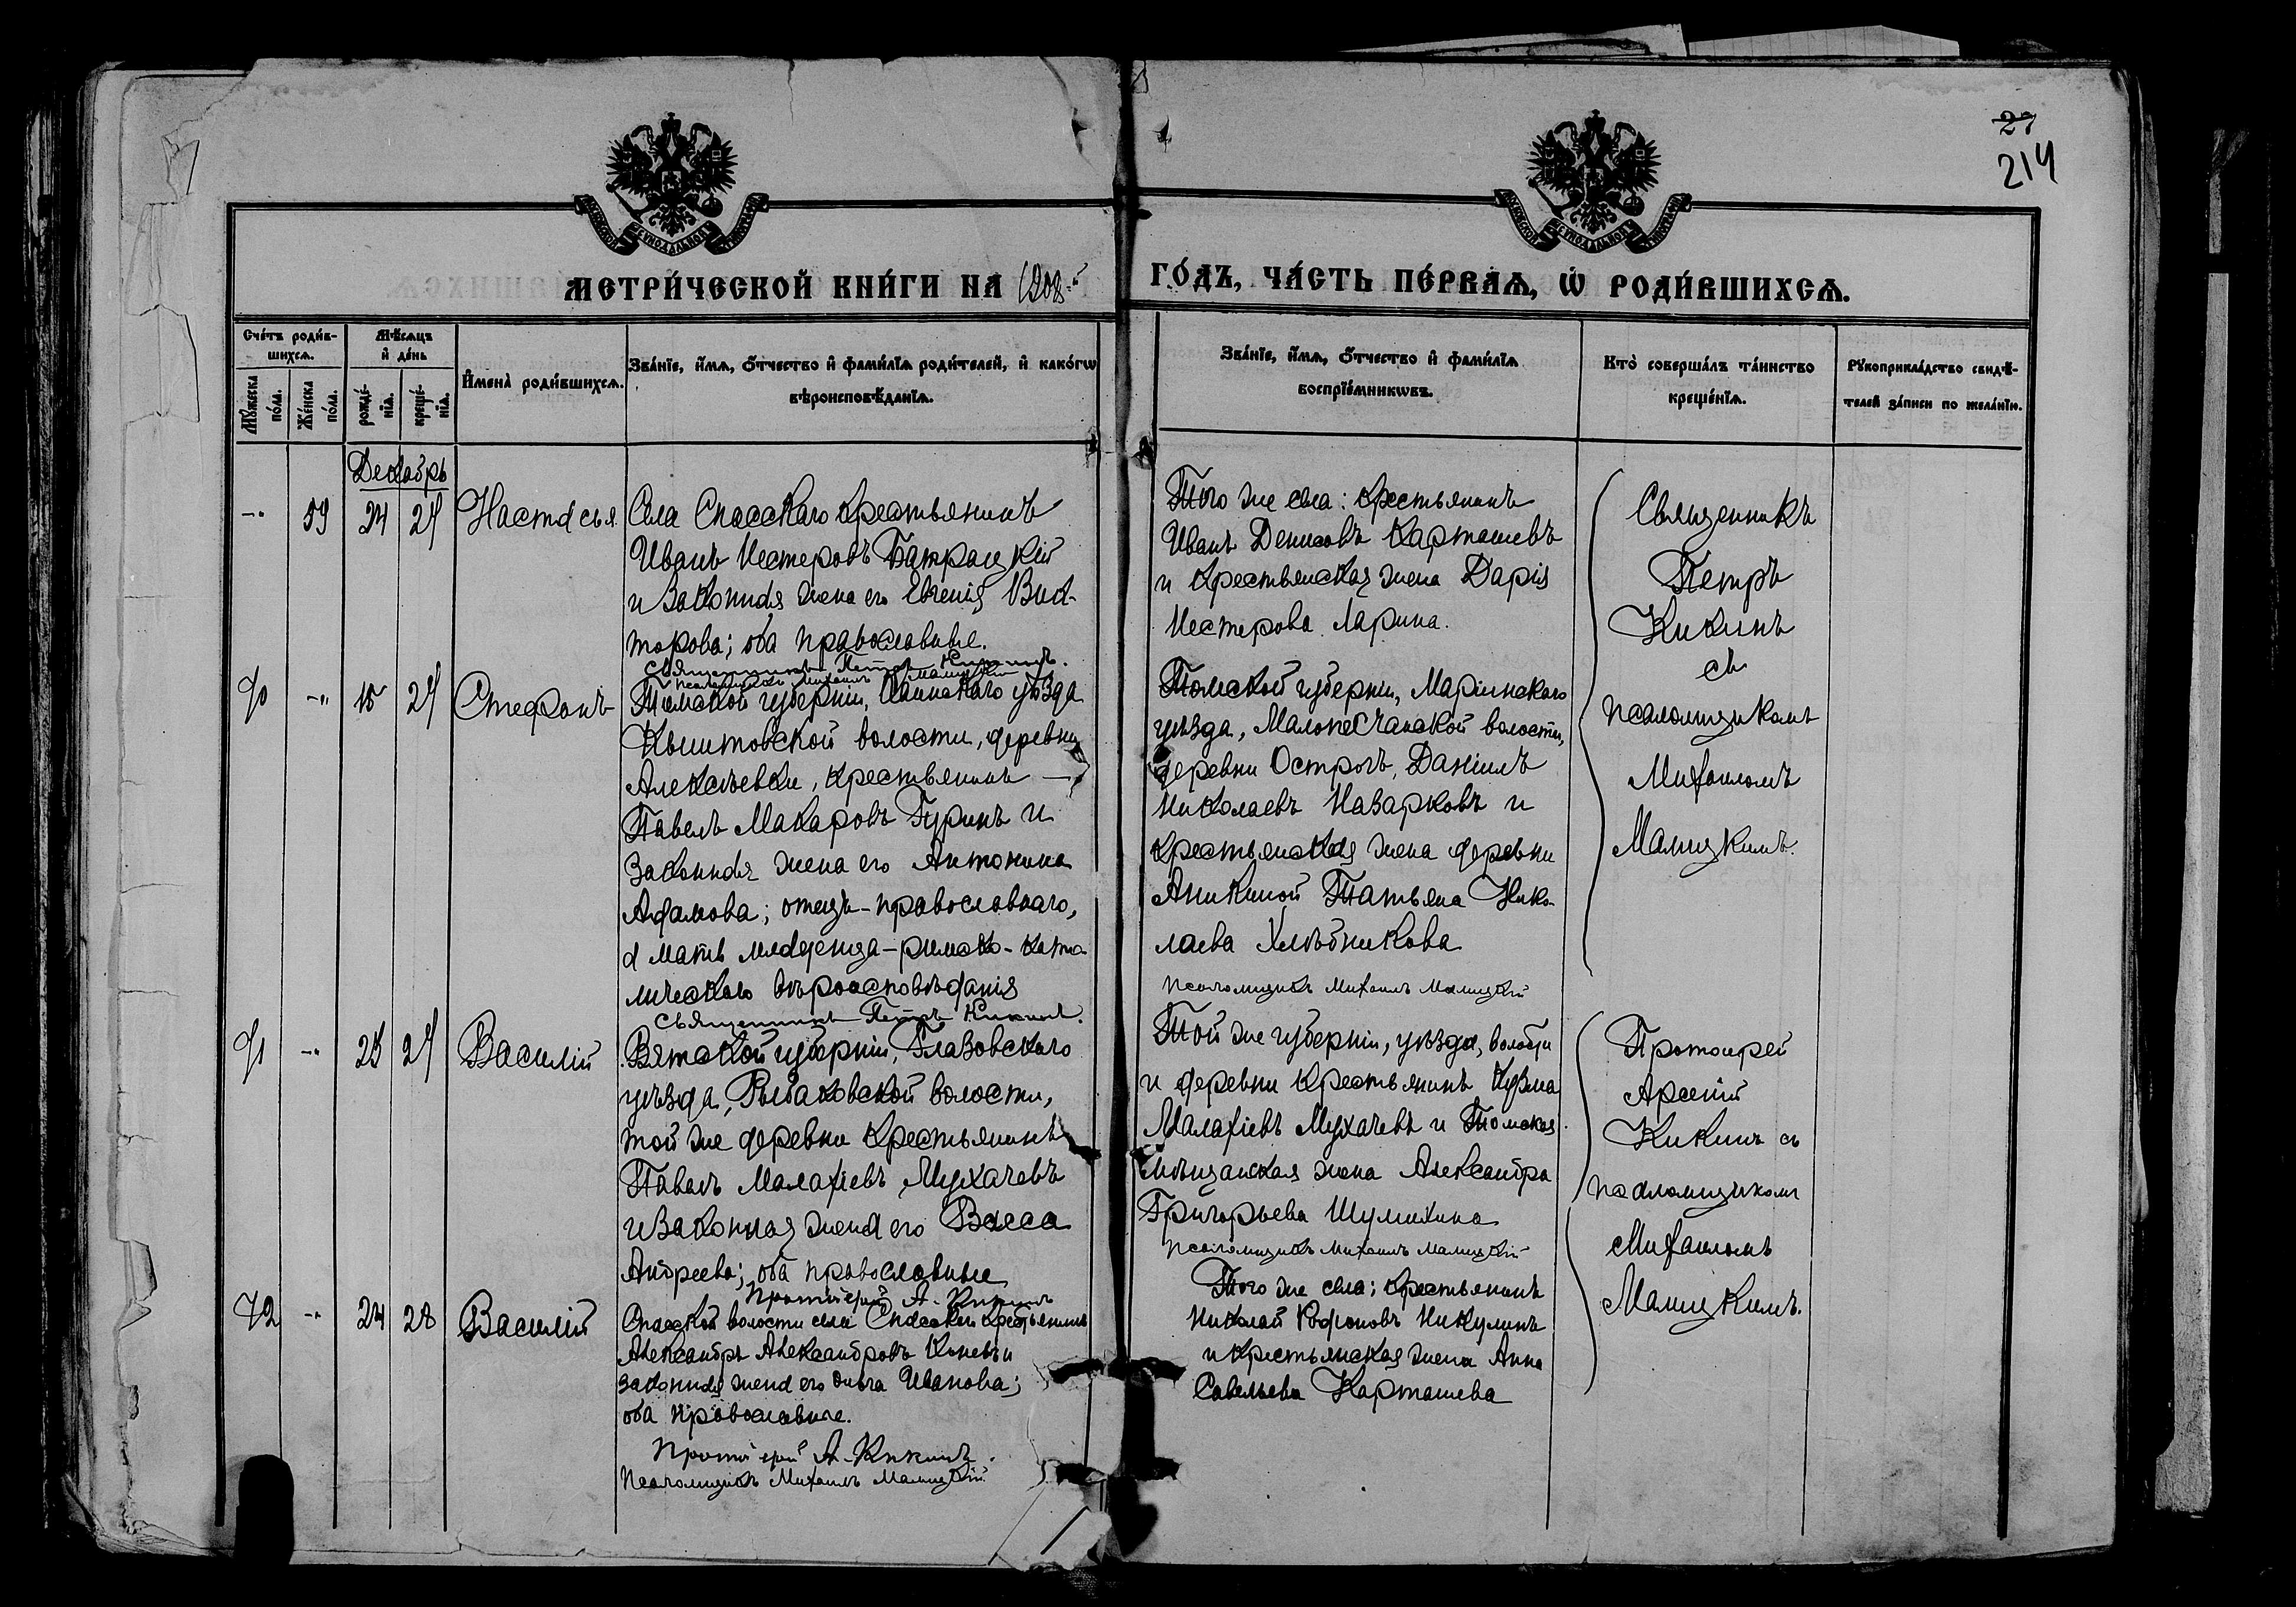 27
214
МОСКОВСКОЙ СѴНОДАЛЬНОЙ ТИПОГРАФІИ
МОСКОВСКОЙ СѴНОДАЛЬНОЙ ТИПОГРАФІИ
МЕТРИ́ЧЕСКОЙ КНИ́ГИ НА 1908-й
ГО́ДЪ, ЧА́СТЬ ПЕ́РВАѦ, Ѡ҆ РОДИ́ВШИХСѦ.
Сче́тъ роди́в-
шихсѧ.
Мꙋ́жеска
по́ла.
Же́нска
по́ла.
Мѣ́сѧцъ
и҆ де́нь
рожде́-
нїѧ.
креще́-
нїѧ.
И҆мена̀ роди́вшихсѧ.
Зва́нїе, и҆́мѧ, ѻ҆́тчество и҆ фами́лїѧ роди́телей, и҆ како́гѡ
вѣроисповѣ́данїѧ.
Зва́нїе, и҆́мѧ, ѻ҆́тчество и҆ фами́лїѧ
воспрїе́мникѡвъ.
Кто̀ соверша́лъ та́инство
креще́нїѧ.
Рꙋкоприкла́дство свидѣ́-
телей за́писи по жела́нїю.
Декабрь
-"- 59 24 27 Настасья
Села Спасскаго крестьянинъ
Иванъ Нестеровъ Батрацкій
и законная жена его Евгенія Вик-
торова; оба православные.
Священникъ Петръ Кикинъ.
Псаломщикъ Михаилъ Малицкій
Того же села: крестьянинъ
Иванъ Денисовъ Карташевъ
и крестьянская жена Дарія
Нестерова Ларина.
Священникъ
Петръ
Кикинъ
съ
псаломщикомъ
Михаиломъ
Малицкимъ.
70 -"- 15 27 Стефанъ
Томской губерніи, Каинскаго уѣзда
Кыштовской волости, деревни
Алексѣевки, крестьянинъ —
Павелъ Макаровъ Гуринъ и
законная жена его Антонина
Адамова; отецъ - православнаго,
а мать младенца - римско-като-
лическаго вѣроисповѣданія
Священникъ Петръ Кикинъ.
Томской губерніи, Маріинскаго
уѣзда, Малопесчанской волости,
деревни Острогъ, Даніилъ
Николаевъ Назарковъ и
крестьянская жена деревни
Аникиной Татьяна Нико-
лаева Хлѣбникова
Псаломщикъ Михаилъ Малицкій
71 -"- 25 27 Василій
Вятской губерніи, Глазовскаго
уѣзда, Рыбаковской волости,
той же деревни крестьянинъ
Павелъ Малахіевъ Мухачевъ
и законная жена его Васса
Андреева; оба православные
Протоіерей А. Кикинъ
Той же губерніи, уѣзда, волости
и деревни крестьянинъ Кузма
Малахіевъ Мухачевъ и Томская
мѣщанская жена Александра
Григорьева Шумихина
Псаломщикъ Михаилъ Малицкій
Протоіерей
Арсеній
Кикинъ съ
псаломщикомъ
Михаиломъ
Малицкимъ.
72 -"- 24 28 Василій
Спасской волости села Спасскаго крестьянинъ
Александръ Александровъ Коневъ и
законная жена его Ольга Иванова;
оба православные.
Протоіерей А. Кикинъ.
Псаломщикъ Михаилъ Малицкій
Того же села: крестьянинъ
Николай Родіоновъ Никулинъ
и крестьянская жена Анна
Савельева Карташева